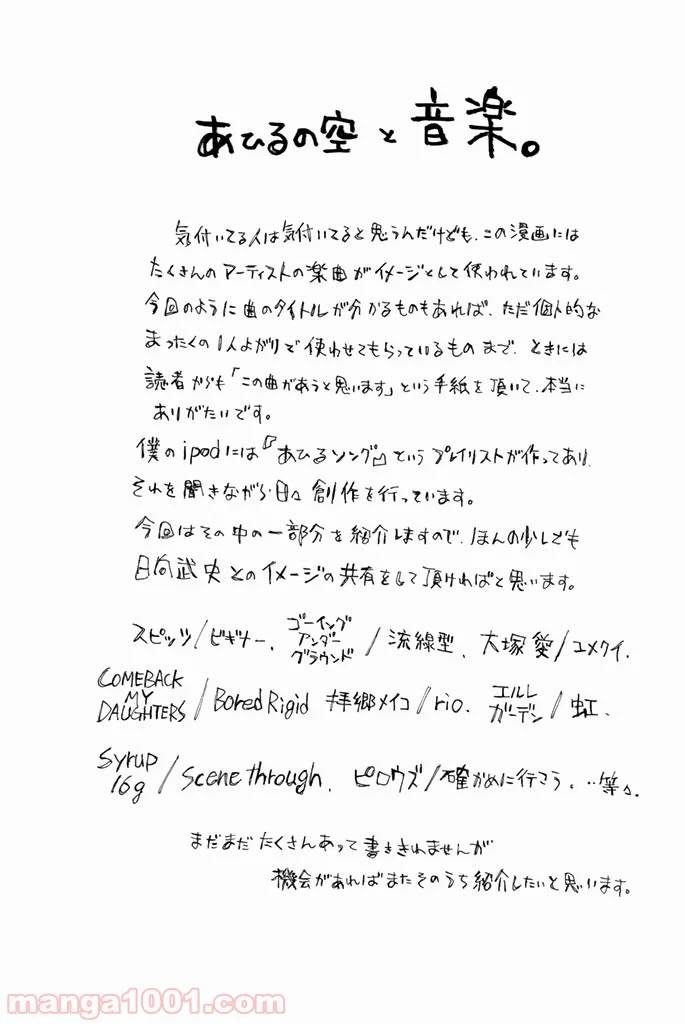 あひるの空と音楽。
気付いてる人は気付いてると思うんだけども、この漫画には
たくさんのアーティストの楽曲がイメージとして使われています。
今回のように曲のタイトルが分かるものもあれば、ただ個人的な
まったくの1人よがりで使わせてもらっているものまで、ときには
読者からも「この曲があうと思います」という手紙を頂いて、本当に
ありがたいです。
僕のipodには『あひるソング』というプレイリストが作ってあり、
それを聞きながら日々創作を行っています。
今回はその中の一部分を紹介しますので、ほんの少しでも
日向武史とのイメージの共有をして頂ければと思います。
スピッツ/ビギナー、ゴーイングアンダーグラウンド/流線型、大塚愛/ユメクイ、
COMEBACK MY DAUGHTERS/Bored Rigid 拝郷メイコ/rio、エルレガーデン/虹、
Syrup16g/Scene through、ピロウズ/確かめに行こう、‥等々。
まだまだたくさんあって書ききれませんが
機会があればまたそのうち紹介したいと思います。
manga1001.com